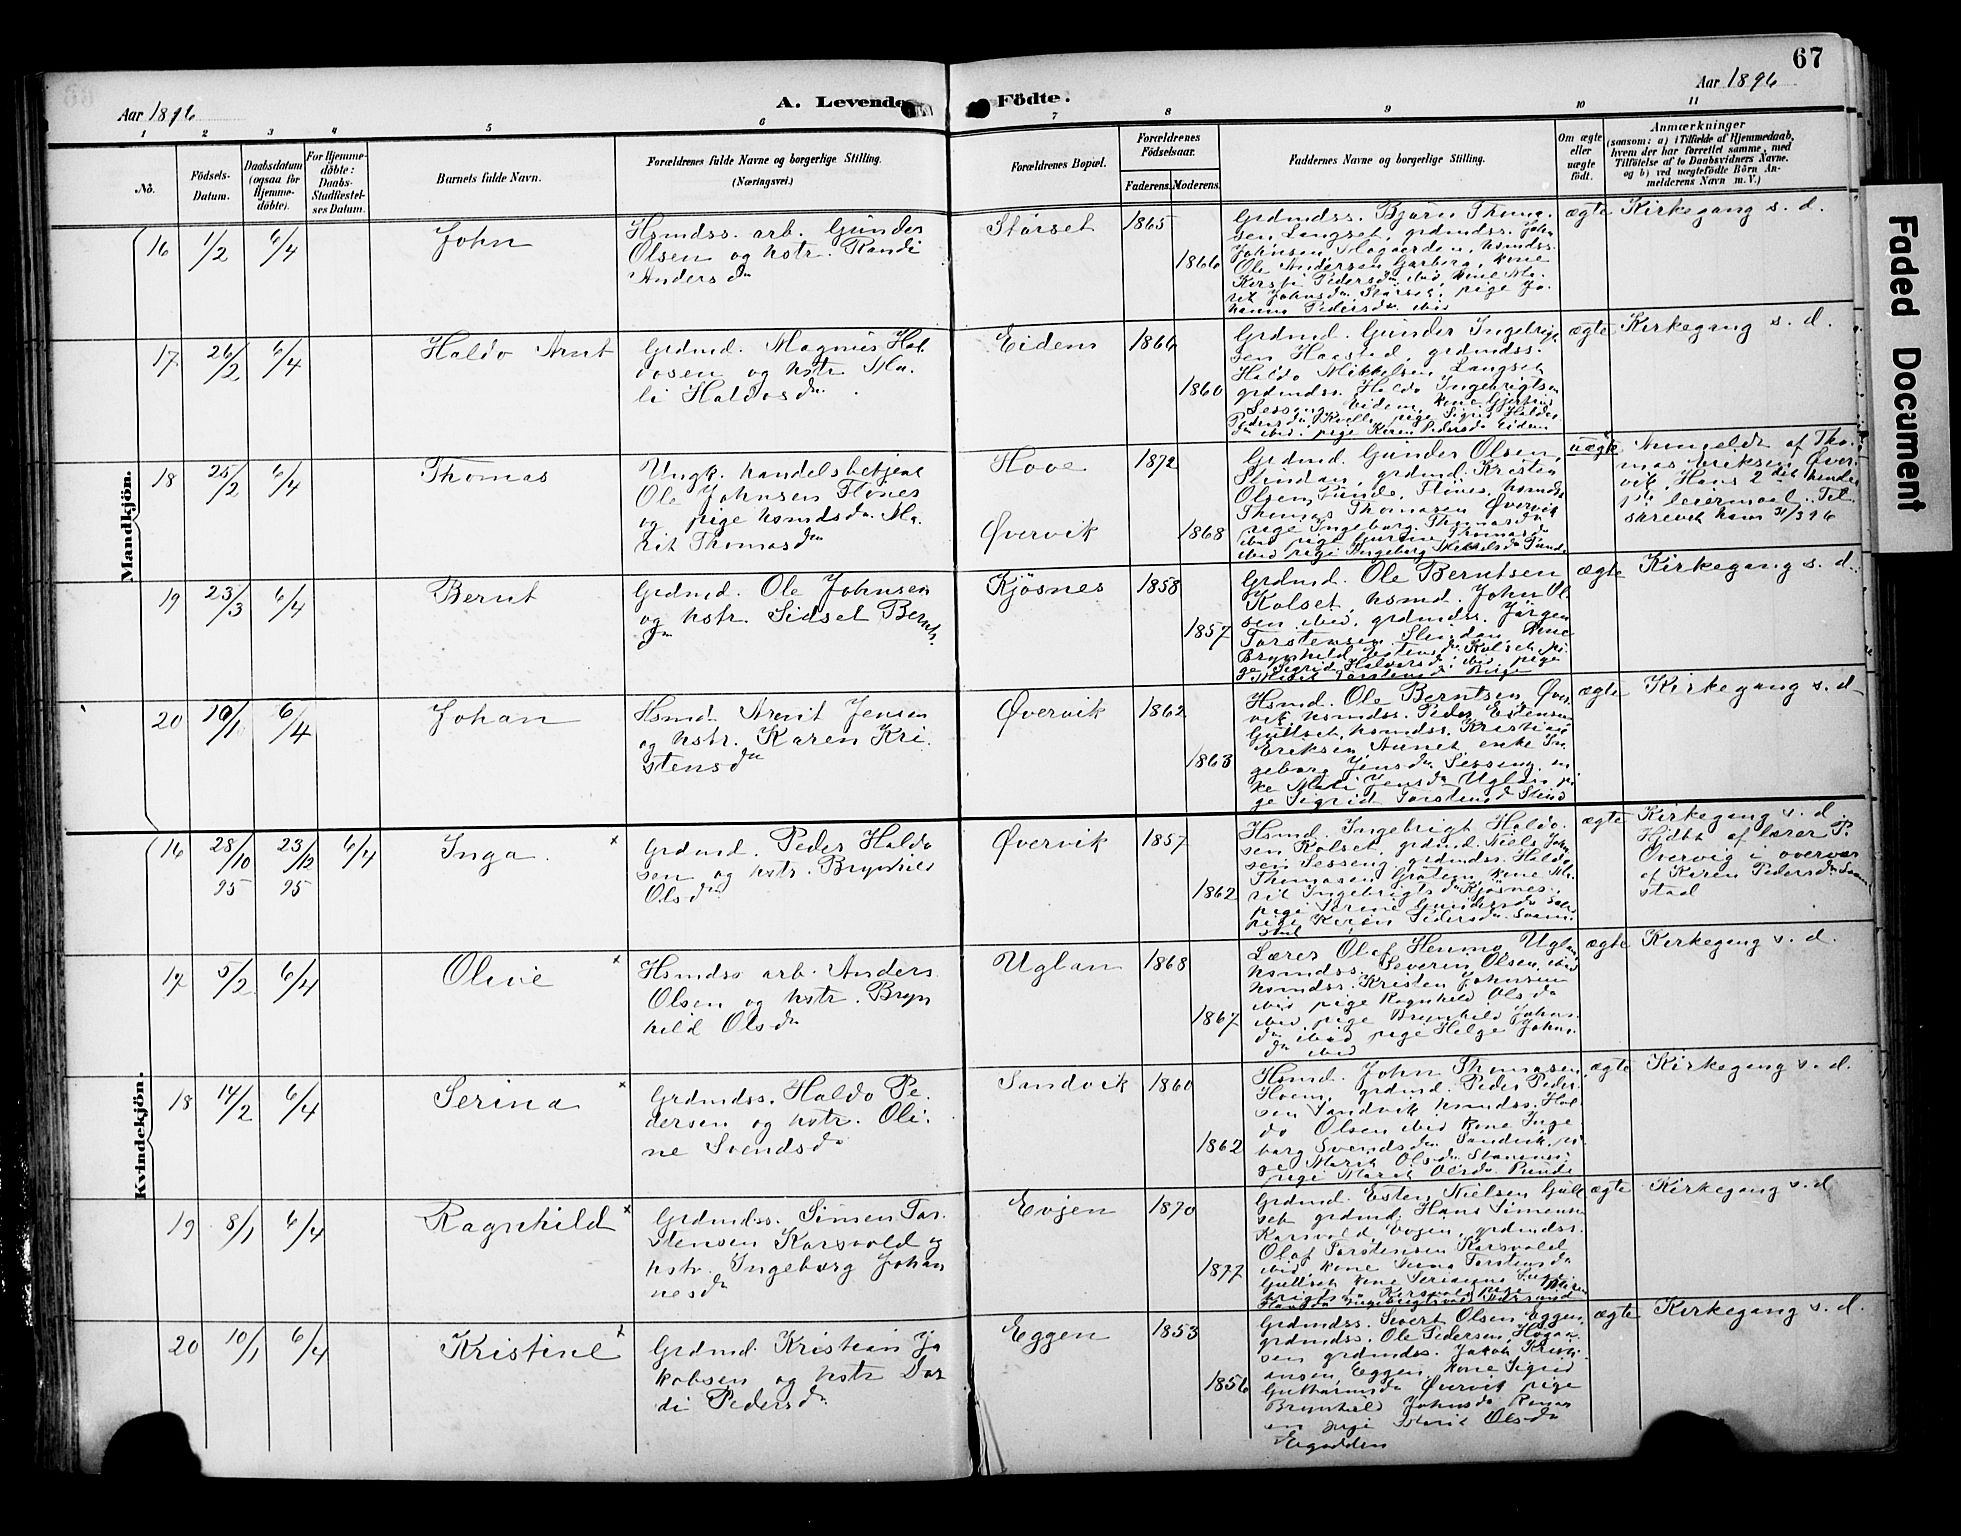 67
Aar 1896
A. Levende Födte.
Aar 1896
1 2 3 4 5 6 7 8 9 10 11
No.
Födsels-Datum.
Daabsdatum (ogsaa for Hjemmedöbte).
For Hjemmedöbte: Daabs-Stadfæstelses Datum.
Barnets fulde Navn.
Forældrenes fulde Navne og borgerlige Stilling.
(Næringsvei.)
Forældrenes Bopæl.
Forældrenes Födselsaar.
Faderens. Moderens.
Faddernes Navne og borgerlige Stilling.
Om ægte eller uægte födt.
Anmærkninger
(saasom: a) i Tilfælde af Hjemmedaab, hvem der har forrettet samme, med Tilföielse af to Daabsvidners Navne. og b) ved uægtefödte Börn Anmelderens Navn m. V.)
Mandkjön.
16 1/2 6/4 John
Hsmdss. arb. Gunder
Olsen og hstr. Randi
Andersdn
Störset 1865 1866
Grdmdss. Bjørn Thoma-
sen Langset, grdmdss. John
Johnsen, hsmdss.
Ole Andersen Garberg, kone
Kersti Pedersdn ibid kone Ma-
rit Johnsdn Störset, pige Jo-
hanna Pedersdn ibid
ægte Kirkegang s. d.
17 26/2 6/4 Haldo Arnt
Grdmd. Magnus Hal-
dosen og hstr. Ma-
li Haldosdn.
Eidem 1864 1860
Grdmd. Gunder Ingebrigt-
sen Haastad, grdmdss.
Haldo Mikkelsen Langset
grdmdss. Haldo Ingebrigtsen
Sesseng, Eidem, kone
Pedersdn pige Sigrid Haldos-
dn ibid. pige Keren Pedersdn Eidem
ægte Kirkegang s. d.
18 25/2 6/4 Thomas
Ungk. handelsbetjent
Ole Johnsen Flönes
og pige hsmdsdn. Ma-
rit Thomasdn
Hove
Øvervik
1872 1868
Grdmd. Gunder Olsen,
Slindan, grdmd. Kristen
Olsen, Flönes, hsmds
Thomas Thomasen Øvervik
pige Ingeborg Thomasdn
ibid pige Thomasdn
ibid pige Ingeborg Mikkelsdn
uægte
Anmeldt af Tho-
mas Eriksen Øver-
vik, Hans 2det hendes
1ste leiermaal. Til-
skrevet ham 31/3 96
19 23/3 6/4 Bernt
Grdmd. Ole Johnsen
og hstr. Sidsel Bernts-
dn
Kjösnes 1858 1857
Grdmd. Ole Berntsen
Kolset, hsmd. John Ol-
sen ibid, grdmdss. Jörgen
Torstensen Slindan, kone
Brynhild Estensdn Kolset, pi-
ge Sigrid Halvorsdn ibid, pige
Marit Torstensd
ægte Kirkegang s. d.
20 10/1 6/4 Johan
Hsmd. Arnt Jensen
og hstr. Karen Kri-
stensdn
Øvervik 1862 1863
Hsmd. Ole Berntsen, Øver-
vik, hsmdss. Peder Estensen
Gullset, hsmdss. Kristian
Eriksen Aunet, enke In-
geborg Jensdn Sesseng, en-
ke Mali Jensdn Uglan pi-
ge Sigrid Torstensd
ægte Kirkegang s. d.
Kvindekjön.
16 28/10 95 23/12 95 6/4 Inga. x
Grdmd. Peder Haldo-
sen og hstr. Brynhild
Olsdn
Øvervik 1857 1862
Hsmd. Ingebrigt Haldo-
sen Kolset, grdmd. Niels John-
sen Sesseng, grdmdss. Haldo
Thomasen kone Ma-
rit Ingebrigtsdn Kjösnes,
pige Serine Gundersdn
pige Keren Pedersdn Svaan-
stad
ægte
Kirkegang s. d.
Hjdbt af lærer P.
Øvervig i overvær
af Keren Pedersdn Svaan-
stad
17 5/2 6/4 Olivie x
Hsmdss arb. Anders
Olsen og hstr. Bryn-
hild Olsdn
Uglan 1868 1867
Lærer Olaf Hemmo Uglan
hsmdss. Severin Olsen, ibid
hsmdss. Kristen Johnsen
ibid pige Ragnhild Olsdn
ibid pige Brynhild Johns-
dn ibid pige Helge Johns-
dn ibid
ægte Kirkegang s. d.
18 14/2 6/4 Serina x
Grdmdss. Haldo Pe-
dersen og hstr. Oli-
ne Svendsdn
Sandvik 1860 1862
Hsmd. John Thomasen
Hoem, grdmd. Peder Peder-
sen Sandvik hsmdss. Hal-
do Olsen ibid kone Inge-
borg Svendsdn Sandvik, pi-
ge Marit Olsdn
pige Marit Olsdn
ægte Kirkegang s. d.
19 8/1 6/4 Ragnhild x
Grdmdss. Simen Tor-
stensen Karsvold og
hstr. Ingeborg Johan-
nesdn
Evjen 1870 1877
Grdmd. Esten Nielsen Gull-
set grdmd. Hans Simensen
Karsvold, Evjen, grdmdss.
Olaf Torstensen Karsvold
ibid, kone Torstensdn
Gullset, kone
ægte Kirkegang s. d
20 10/1 6/4 Kristine x
Grdmd. Kristian Ja-
kobsen og hstr. Dor-
di Pedersdn
Eggen 1853 1856
Grdmdss. Sivert Olsen Eggen,
grdmdss. Ole Pedersen,
grdmdss. Jakob Kristi-
ansen, Eggen, kone Sigrid
Guttormsdn Øvervik pige
Brynhild Johnsdn
pige Marit Olsdn
ægte Kirkegang s. d.
Faded Document